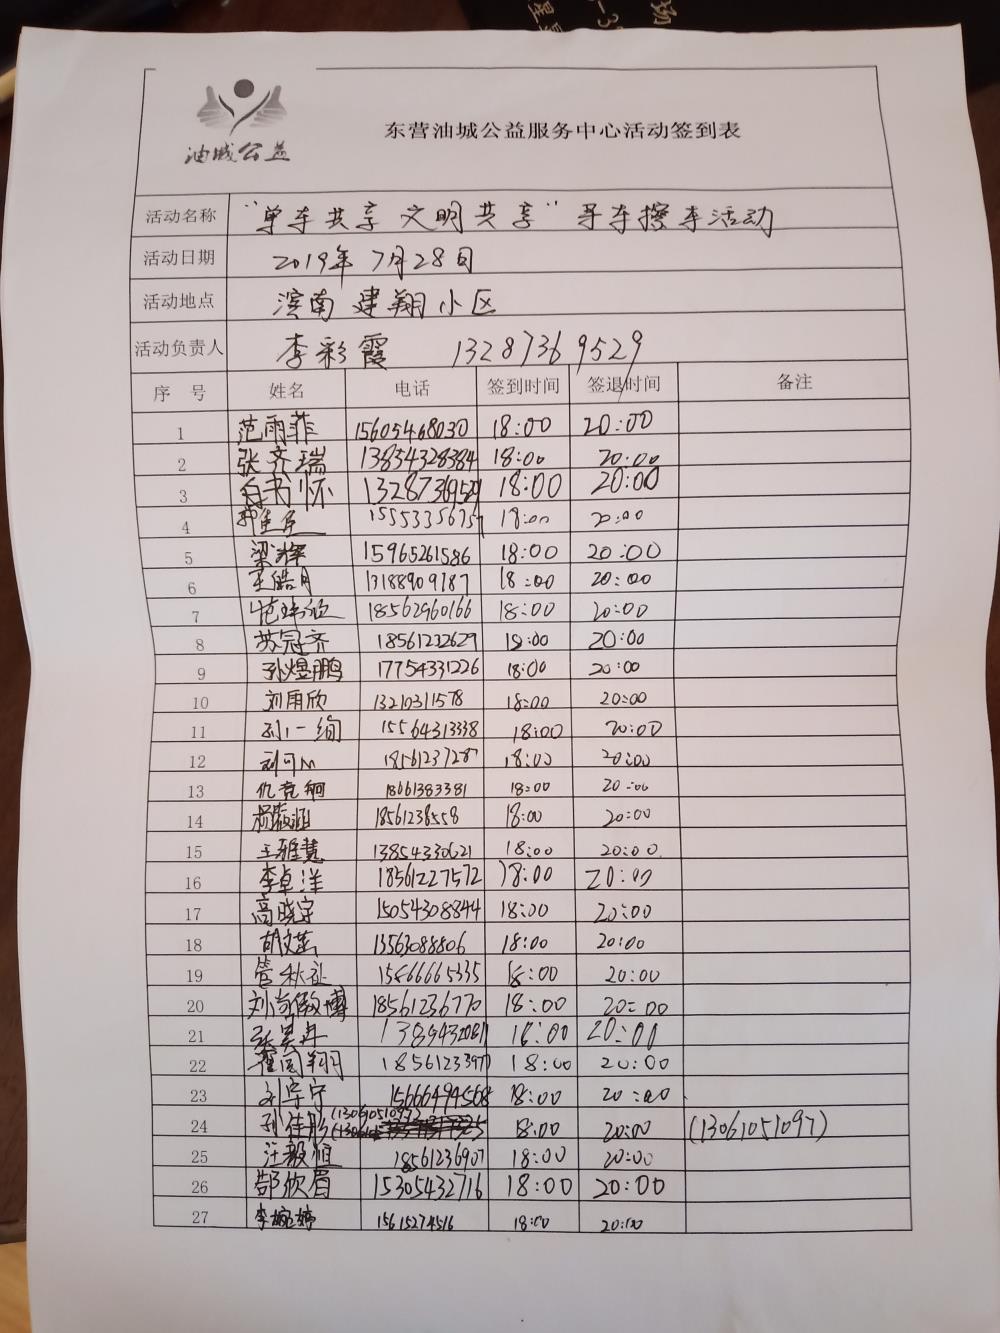 油城公益
东营油城公益服务中心活动签到表
活动名称 "单车共享 文明共享"寻车擦车活动
活动日期 2019年7月28日
活动地点 滨南建翔小区
活动负责人 李彩霞 13287369529
序 号 姓名 电话 签到时间 签退时间 备注
1 范雨菲 15605468030 18:00 20:00
2 张齐瑞 13854328384 18:00 20:00
3 白书怀 13287369529 18:00 20:00
4 18:00 20:00
5 梁辉 15965261586 18:00 20:00
6 王皓月 13188909787 18:00 20:00
7 18562960166 18:00 20:00
8 苏冠齐 18561232629 18:00 20:00
9 孙煜鹏 17754331226 18:00 20:00
10 刘雨欣 13210311578 18:00 20:00
11 孙一绚 15564313338 18:00 20:00
12 18561237287 18:00 20:00
13 18661383381 18:00 20:00
14 18561238558 18:00 20:00
15 王雅慧 13854330621 18:00 20:00
16 李卓洋 18561227572 18:00 20:00
17 高晓宇 15054308844 18:00 20:00
18 13563088806 18:00 20:00
19 管秋祉 15666665335 18:00 20:00
20 刘尚微博 18561236770 18:00 20:00
21 张昊冉 18:00 20:00
22 翟国翔 18561233977 18:00 20:00
23 刘宇宁 15666494568 18:00 20:00
24 孙佳彤 (13061051097) 18:00 20:00 (13061051097)
25 汪毅恒 18561236907 18:00 20:00
26 郜欣眉 15305432716 18:00 20:00
27 李婉婷 15615274516 18:00 20:00